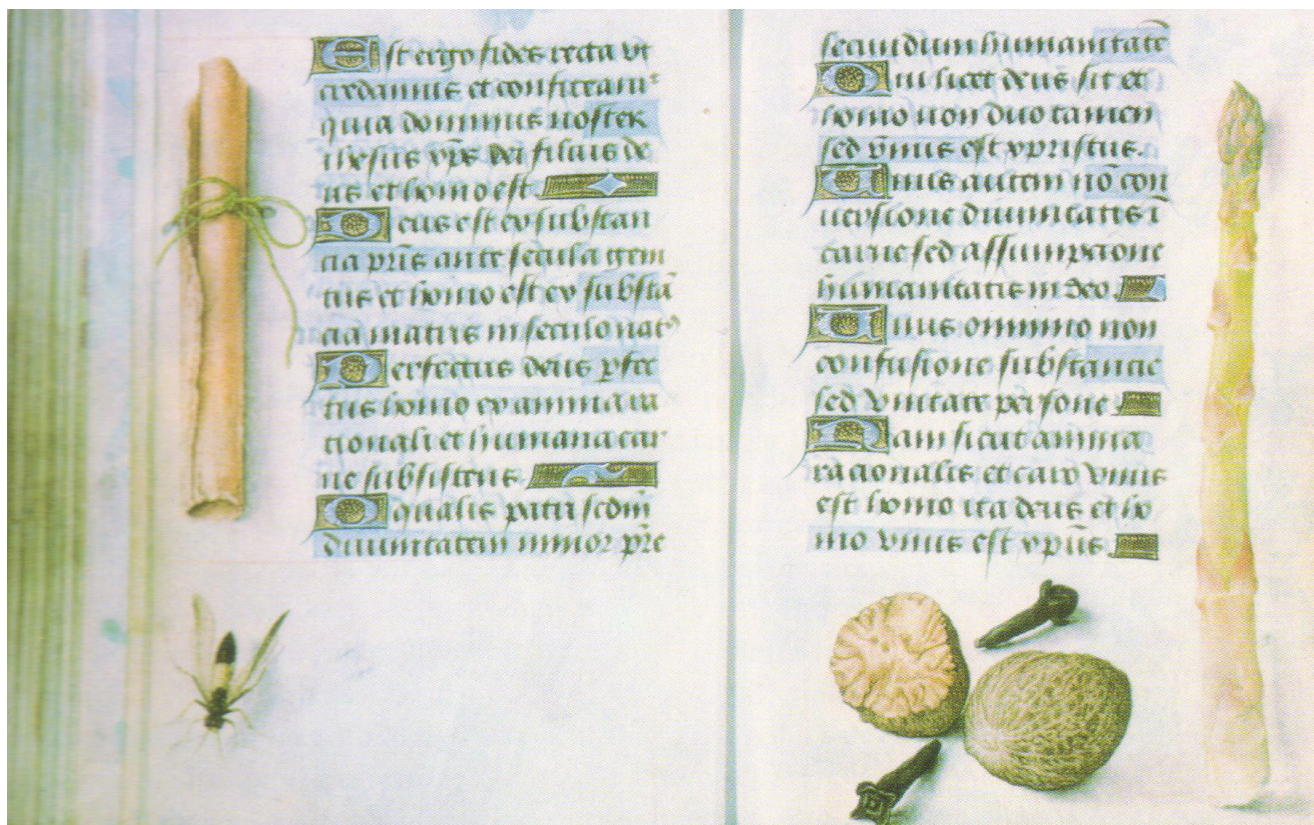 Est ergo fides recta vt
credamus et confiteamʳ
quia dominus noster
ihesus xp̄s dei filius de
us et homo est.
Deus est ex substan
cia p̄ris ante secula geni
tus et homo est ex substā
cia matris in seculo natꝰ
Perfectus deus ꝑfec
tus homo ex anima ra
tionali et humana car
ne subsistens.
Equalis patri scdm̄
diuinitatem minor p̄re
secundum humanitatē
Qui licet deus sit et
homo non duo tamen
sed vnus est xpristus.
Unus autem nō con
uersione diuinitatis ī
carne sed assumpcione
humanitatis in deo.
Unus omnino non
confusione substancie
sed vnitate persone
Nam sicut anima
racionalis et caro vnus
est homo ita deus et ho
mo vnus est xp̄us.